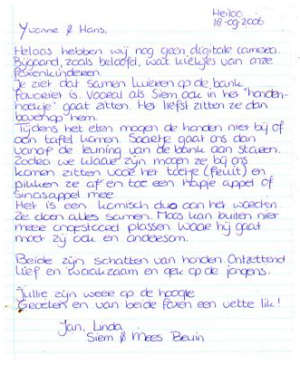 Heiloo
18-09-2006
Yvonne & Hans,
Helaas hebben wij nog geen digitale camera.
Bijgaand, zoals beloofd, wat kiekjes van onze
pleegkinderen.
Je ziet dat samen luieren op de bank
favoriet is. Vooral als Siem ook in het "honden-
hoekje" gaat zitten. Het liefst zitten ze dan
bovenop hem.
Tijdens het eten mogen de honden niet bij of
aan tafel komen. Saartje gaat ons dan
vanaf de leuning van de bank aan staren.
Zodra we klaar zijn mogen ze bij ons
komen zitten voor het toetje (fruit) en
pikken ze af en toe een hapje appel of
sinasappel mee.
Het is een komisch duo aan het worden
ze doen alles samen. Maas kan buiten niet
meer ongestoord plassen waar hij gaat
moet zij ook en andersom.
Beide zijn schatten van honden. Ontzettend
lief en waakzaam en gek op de jongens.
Jullie zijn weer op de hoogte
Groeten en van beide een vette lik!
Jan, Linda
Siem & Mees Bruin